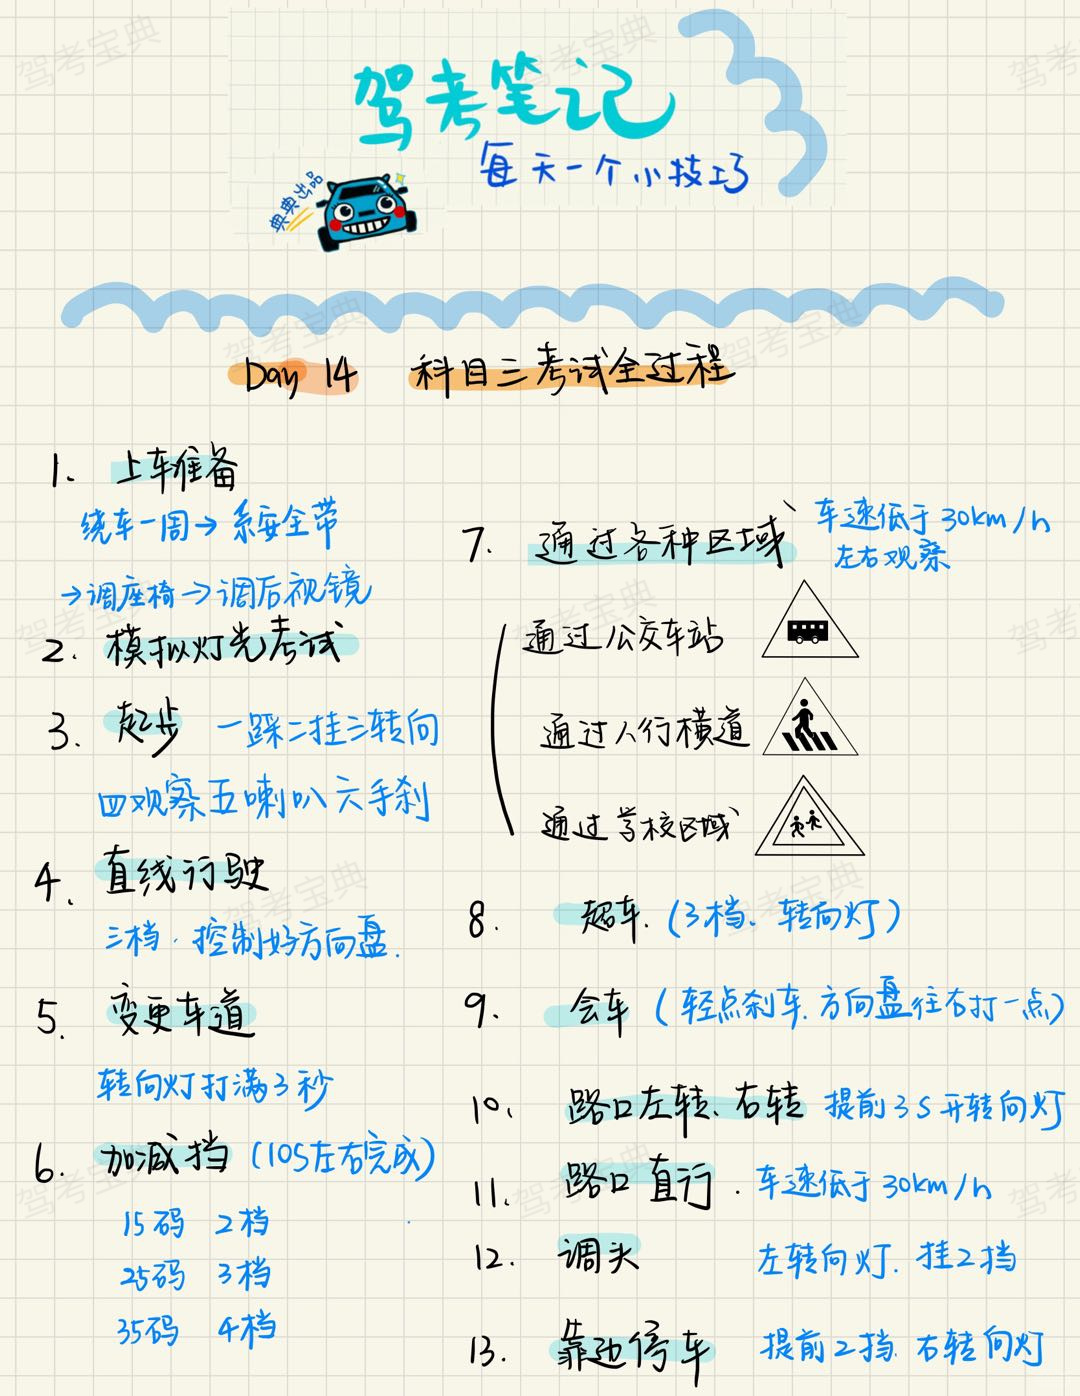 驾考笔记
每天一个小技巧
典典出品
Day 14 科目三考试全过程
1. 上车准备
绕车一周→系安全带
→调座椅→调后视镜
2. 模拟灯光考试
3. 起步 一踩二挂三转向
四观察五喇叭六手刹
4. 直线行驶
三档.控制好方向盘.
5. 变更车道
转向灯打满3秒
6. 加减挡(10S左右完成)
15码 2档
25码 3档
35码 4档
7. 通过各种区域、车速低于30km/h
左右观察
通过公交车站
通过人行横道
通过学校区域
8. 超车.(3档、转向灯)
9. 会车(轻点刹车.方向盘往右打一点)
10. 路口左转、右转 提前3S开转向灯
11. 路口直行.车速低于30km/h
12. 调头 左转向灯.挂2挡
13. 靠边停车 提前2挡 右转向灯
驾考宝典